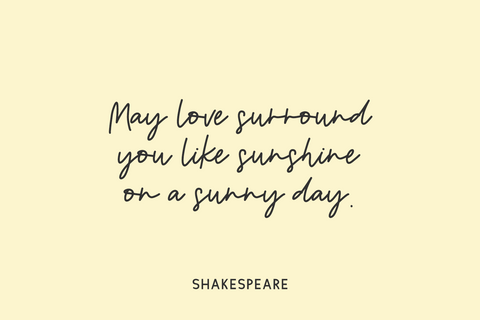 May love surround
you like sunshine
on a sunny day.
SHAKESPEARE